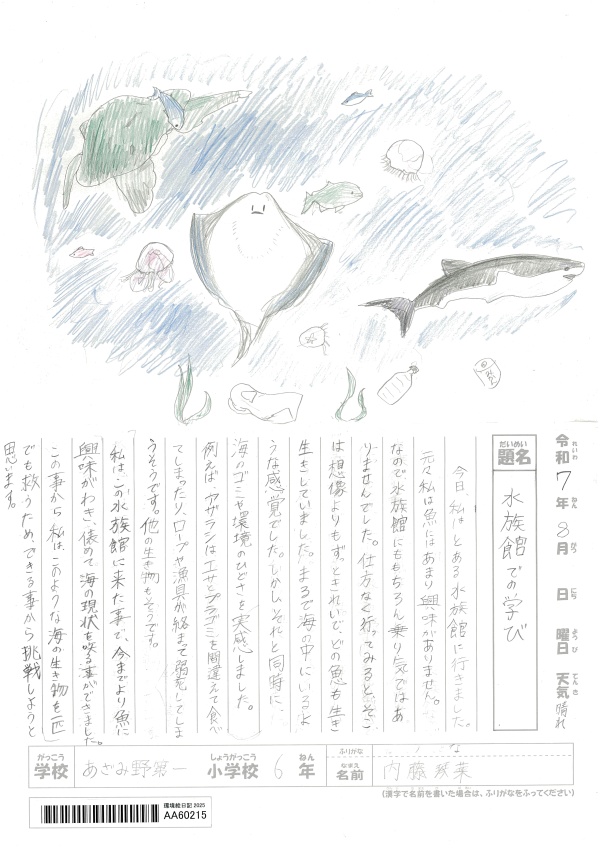 令和7年8月 日 曜日 天気 晴れ
れいわ ねん がつ にち ようび てんき
だいめい
題名
水族館での学び
今日、私はとある水族館に行きました。
元々私は魚にはあまり興味がありません。
なので水族館にももちろん乗り気ではあ
りませんでした。仕方なく行ってみると、そこ
は想像よりもずっときれいで、どの魚も生き
生きしていました。まるで海の中にいるよ
うな感覚でした。しかし、それと同時に、
海のゴミや環境のひどさを実感しました。
例えば、アザラシはエサとプラゴミを間違えて食べ
てしまったり、ロープや漁具が絡まて弱死してしま
うそうです。他の生き物もそうです。
私は、この水族館に来た事で、今までより魚に
興味がわき、改めて海の現状を
事ができました。
この事から、私は、このような海の生き物を一匹
でも救うため、できる事から挑戦しようと
思います。
がっこう
学校
あざみ野第一
しょうがっこう
小学校
6
ねん
年
ふりがな
なまえ
名前
内藤
菜
(漢字で名前を書いた場合は、ふりがなをふってください)
環境絵日記 2025
AA60215